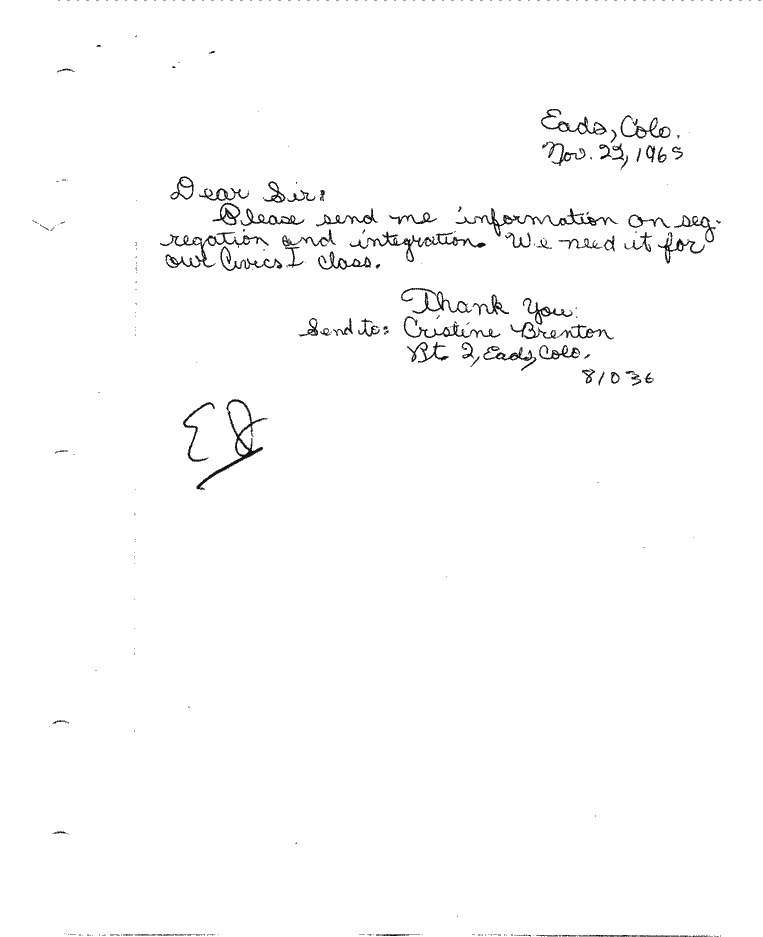 Eads, Colo.
Nov. 22, 1965
Dear Sir:
Please send me information on seg-
regation and integration. We need it for
our Civics I class.
Thank You:
Send to: Cristine Brenton
Rt. 2, Eads, Colo.
81036